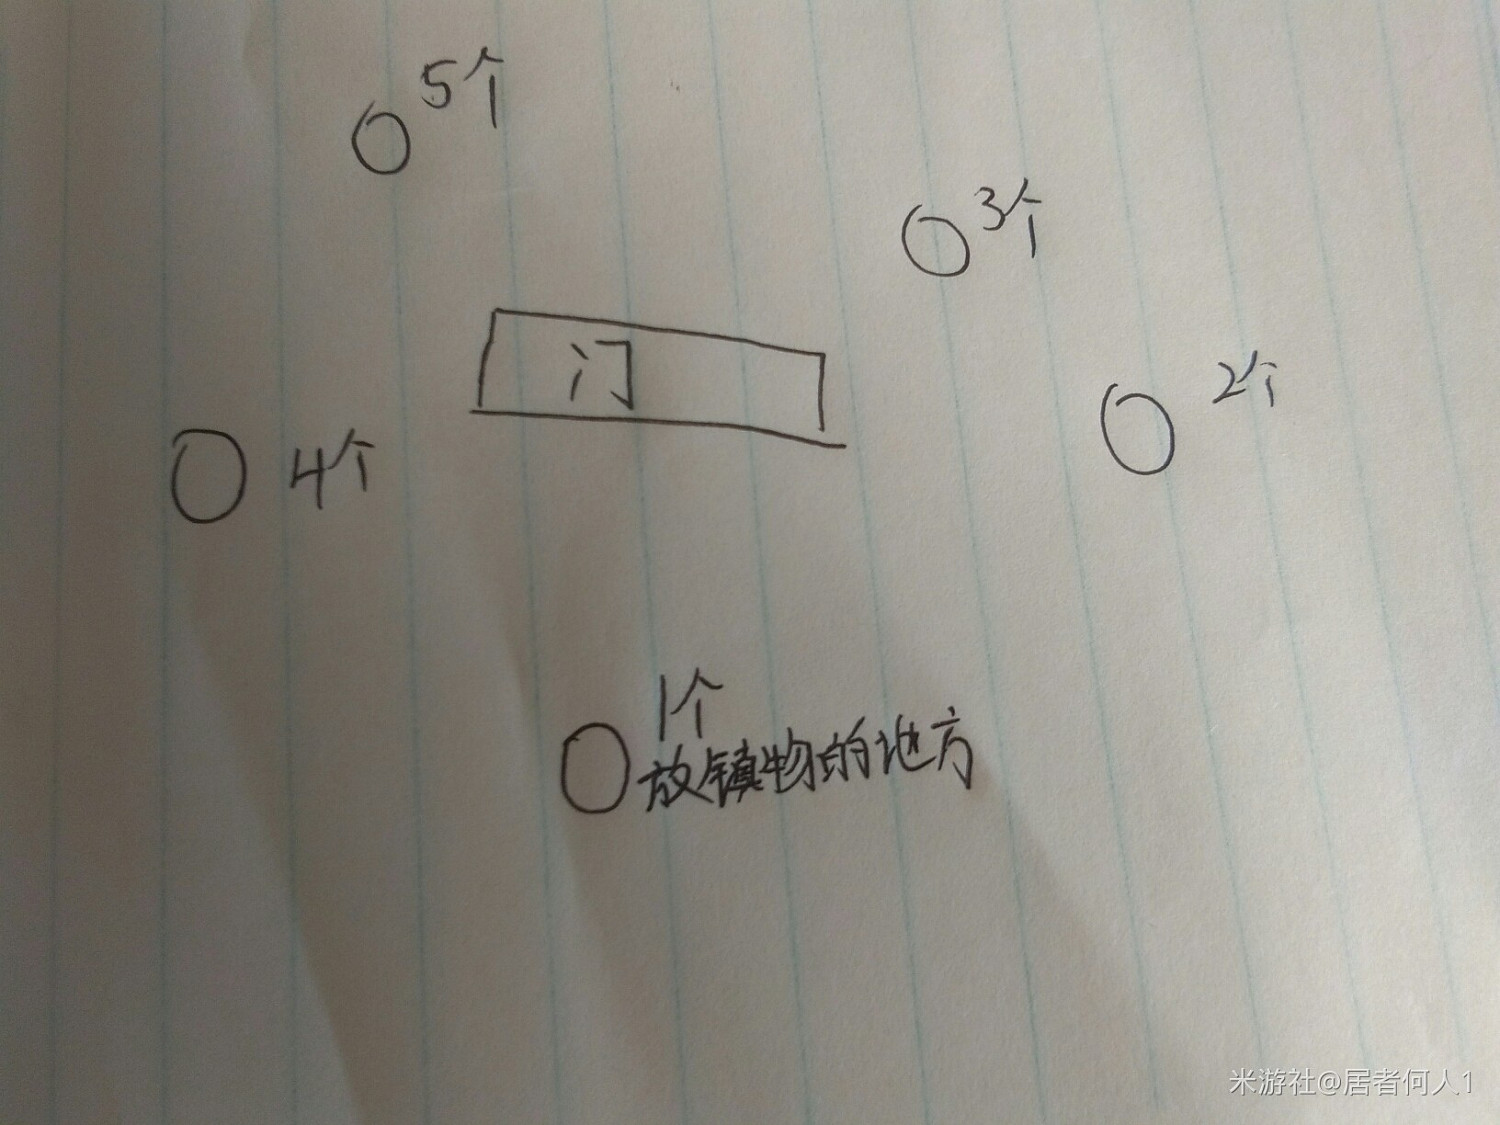 5个
3个
门
2个
4个
1个
放镇物的地方
米游社@居者何人1